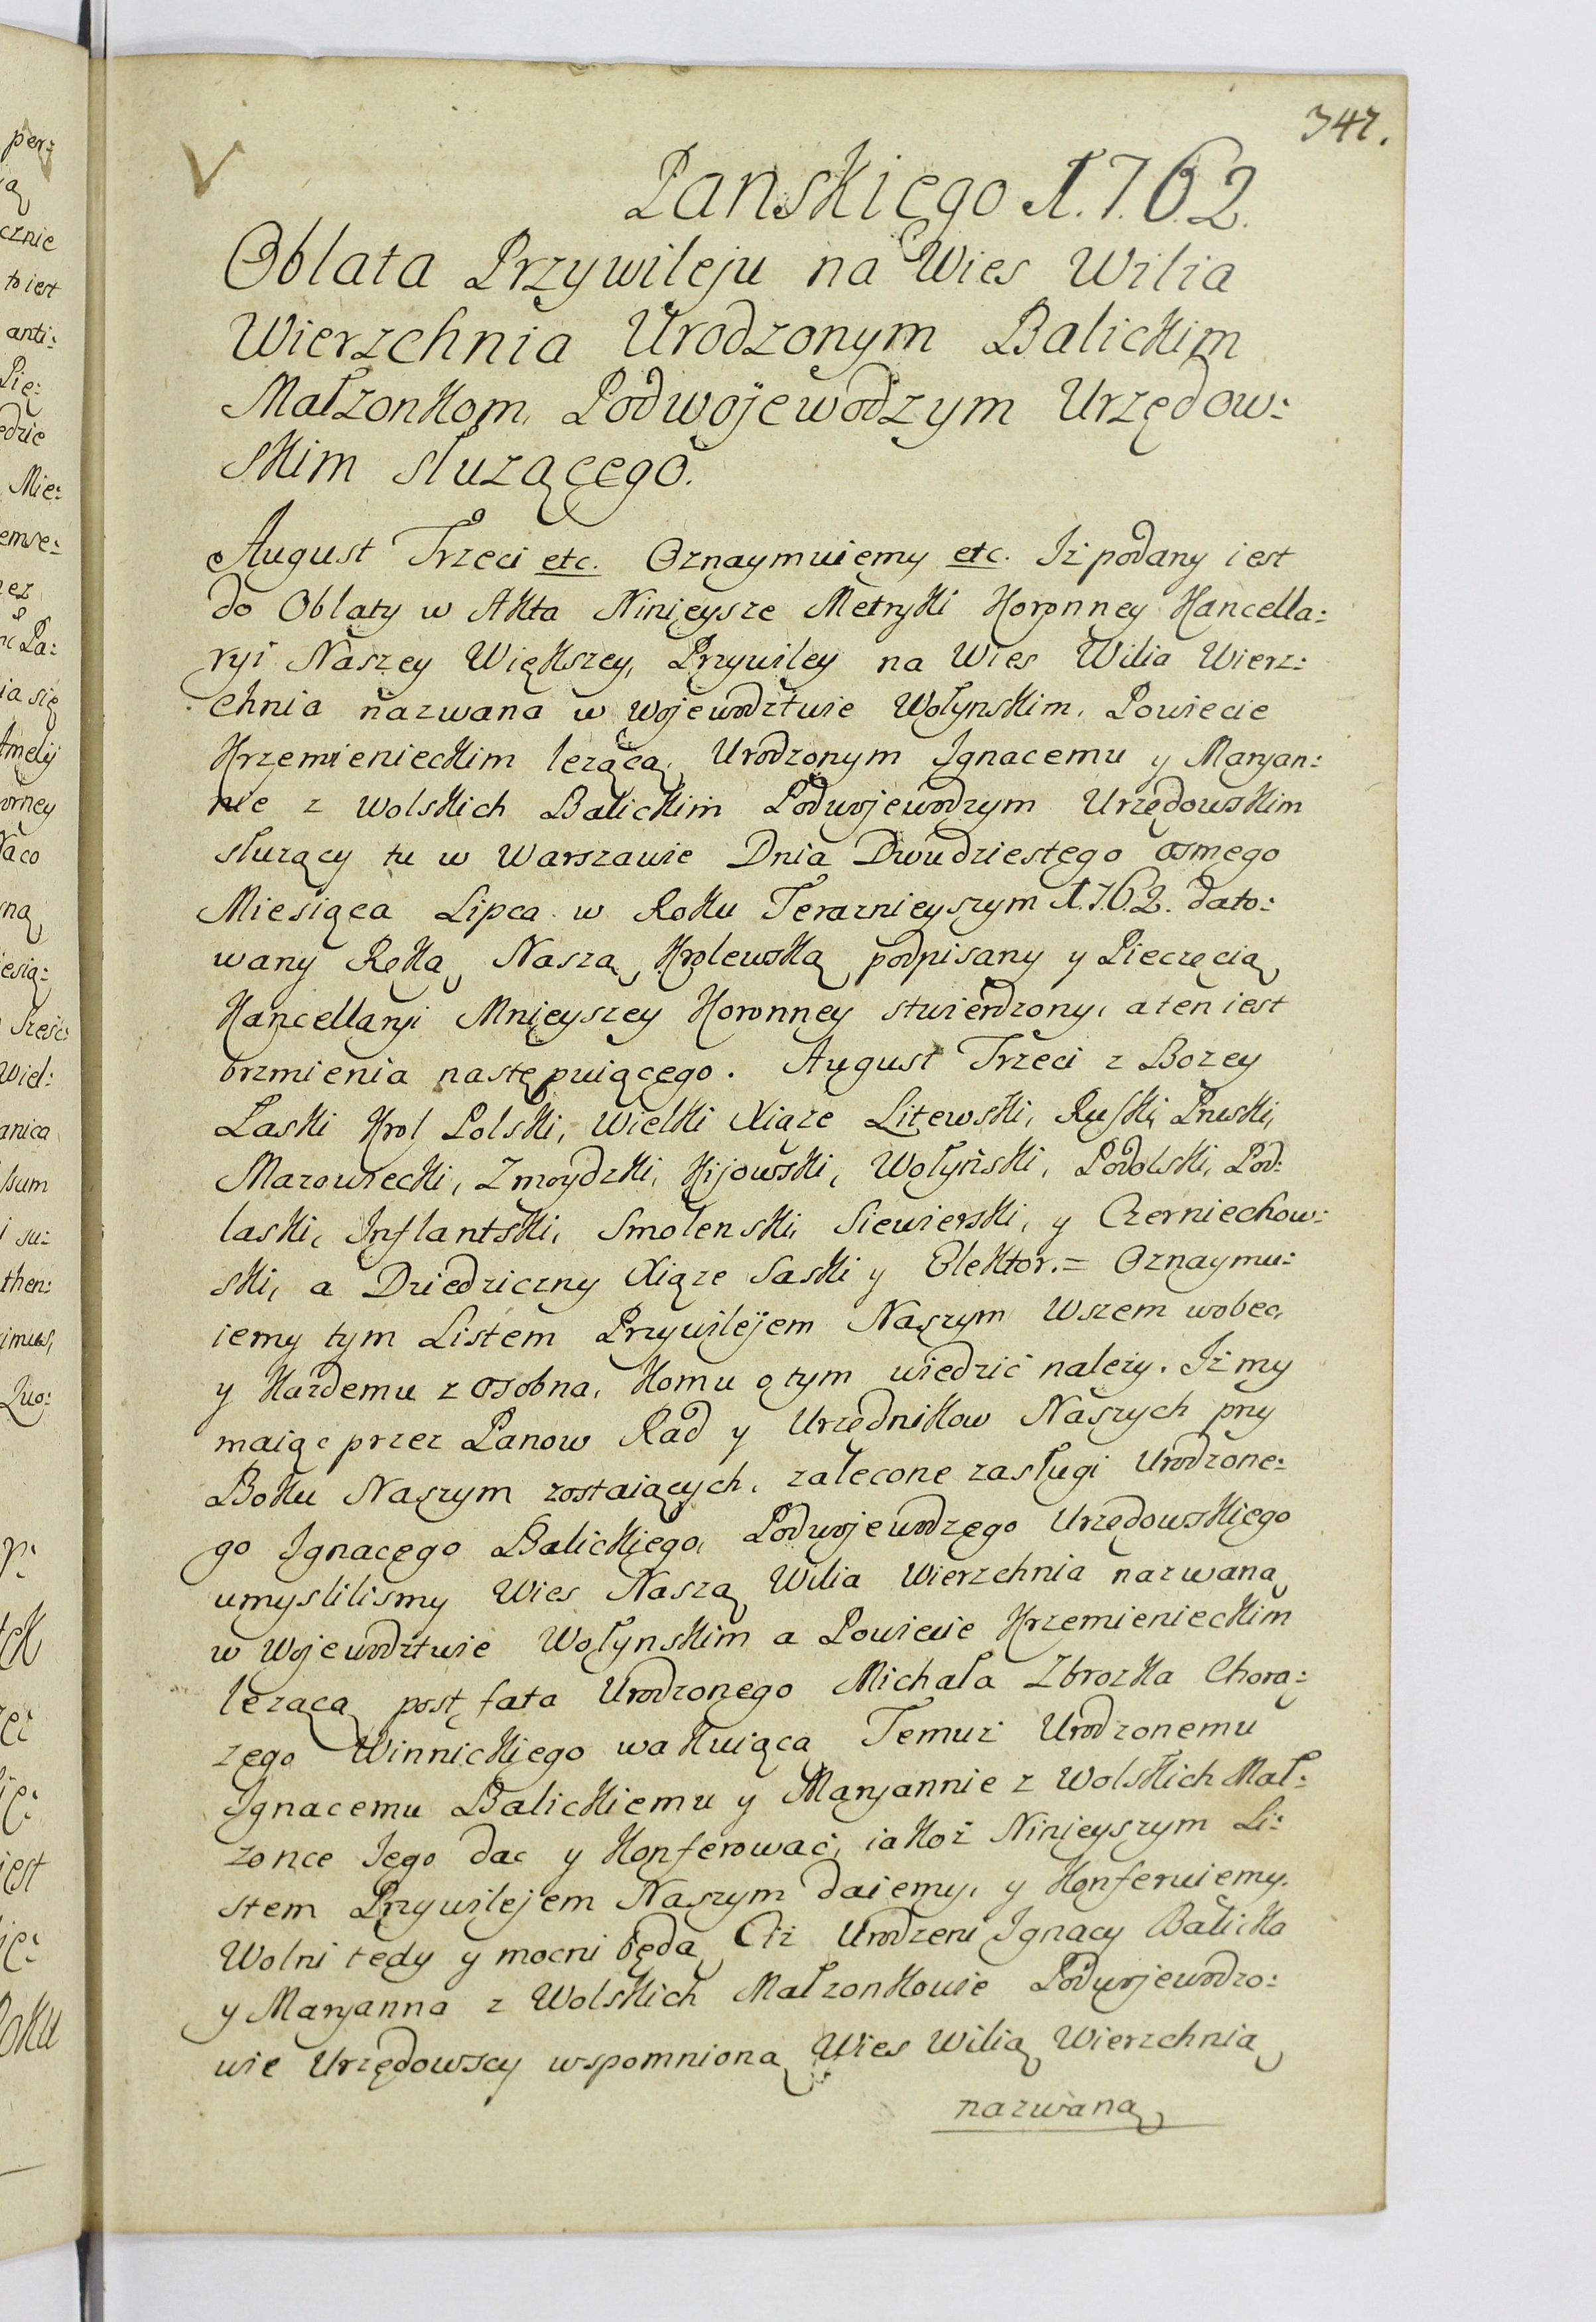 347.
Panskiego 1762.
Oblata Przywileju na Wies Wilia
Wierzchnia Urodzonym Balickim
Małzonkom, Podwojewodzym Urzędow:
skim słuząçego.
August Trzeci etc. Oznaymuiemy etc. Iż podany iest
do Oblaty w Akta Ninieysze Metryki Koronney Kancella:
ryi Naszey Większey, Przywiley na Wies Wilia Wierz:
chnia nazwana w Wojewodztwie Wołynskim, Powiecie
Krzemienieckim lezącą, Urodzonym Ignacemu y Maryan:
nie z Wolskich Balickim Podwojewodzym Urzędowskim
słuzący tu w Warszawie Dnia Dwudziestego osmego
Miesiąca Lipca w Roku Teraznieyszym 1762. dato:
wany Ręką Naszą Krolewską podpisany y Pieczęcią
Kancellaryi Mnieyszey Koronney stwierdzony, a ten iest
brzmienia następuiącego. August Trzeci z Bozey
Łaski Krol Polski, Wielki Xiąze Litewski, Ruski, Pruski,
Mazowiecki, Zmoydzki, Kijowski, Wołyński, Podolski, Pod:
laski, Inflantski, Smolenski, Siewierski, y Czerniechow:
ski, a Dziedziczny Xiąze Saski y Elektor.= Oznaymu:
iemy tym Listem Przywilejem Naszym Wszem wobec,
y Kazdemu z osobna, Komu o tym wiedzić nalezy. Iż my
maiąc przez Panow Rad y Urzędnikow Naszych przy
Boku Naszym zostaiących, zalecone zasługi Urodzone:
go Ignacego Balickiego, Podwojewodzego Urzędowskiego
umyslilismy Wies Naszą Wilia Wierzchnia nazwaną
w Wojewodztwie Wołynskim a Powiecie Krzemienieckim
lezącą post fata Urodzonego Michała Zbrozka Chorą:
zego Winnickiego wakuiącą Temuż Urodzonemu
Ignacemu Balickiemu y Maryannie z Wolskich Mał:
zonce Jego dac y Konferować, iakoż Ninieyszym Li:
stem Przywilejem Naszym daiemy, y Konferuiemy.
Wolni tedy y mocni będą Ciż Urodzeni Ignacy Balicka
y Maryanna z Wolskich Małzonkowie Podwojewodzo:
wie Urzędowscy wspomnioną Wies Wilią Wierzchnią
nazwaną
per:
cznie
to iest
anti:
Pię:
Mie:
ia się
Amelij
Naco
anica
then:
Quo:
iest
Roku